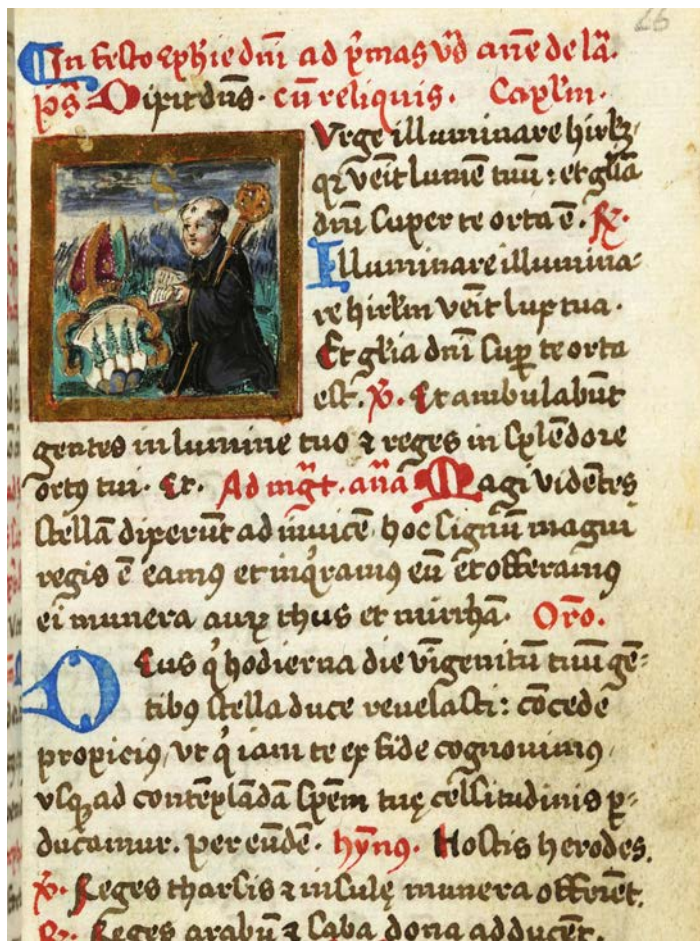 26
In festo ephie dn̄i ad p̄mas vs̄ ane de lā.
ps̄ Dixit dūs. cū reliquis. Capl̄m.
S
Vrge illuminare hirl̄z,
qz veīt lumē tuū: et glīā
dn̄i super te orta ē. R̄.
Illuminare illumina=
re hirl̄m veīt lux tua.
Et glīa dn̄i sup̄ te orta
est. v̄. Et ambulabūt
gentes in lumine tuo ⁊ reges in splēdore
ortꝰ tui. Et. Ad mgt̄. anā Magi videntes
stellā dixerūt ad inuicē hoc signū magni
regis ē eamꝰ et inq̄ramꝰ eū et offeramꝰ
ei munera auꝝ thus et mirrhā. Orō.
Deus q̄ hodierna die vnigenitū tuū gē=
tibꝰ stella duce reuelasti: cōcede
propiciꝰ, vt q̄ iam te ex fide cognouimꝰ,
vsqꝫ ad contēplādā spēm tuę celsitudinis p=
ducamur. per eūdē. hȳnꝰ. Hostis herodes.
v̄. Reges tharsis ⁊ insulę munera offerēt.
R̄. Reges arabū ⁊ saba dona adducēt.